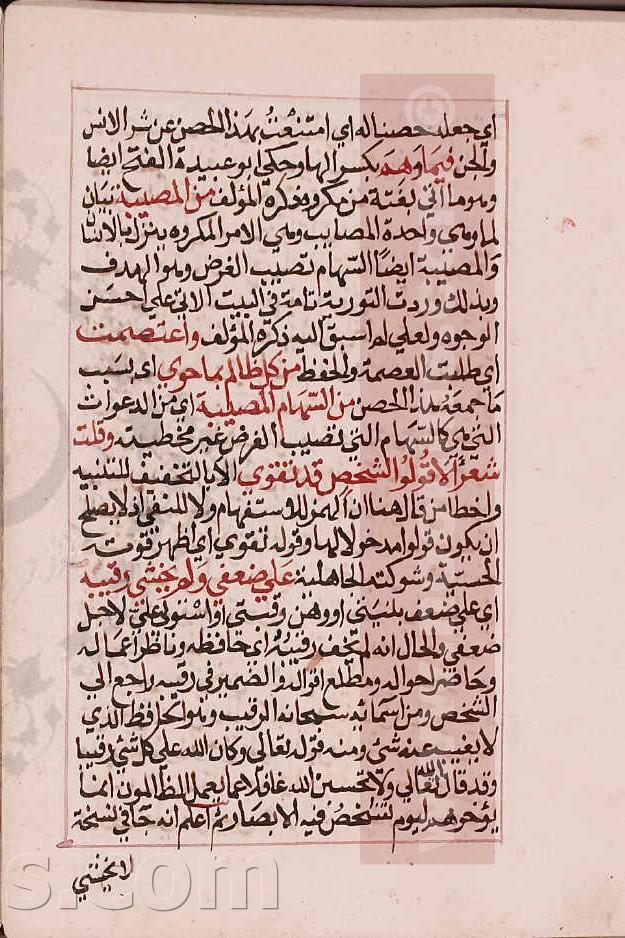 اي جعله حصناله اي امتنعت بهذا الحصن عن شر الانس
والجن فيما وهم بكسر الها وحكي ابو عبيدة الفتح ايضا
وهو ما اتي بغتة من مكروه ذكره المؤلف من المصيبة بيان
لما وهي واحدة المصايب وهي الامر المكروه ينزل بالانسان
والمصيبة ايضا السهام تصيب الغرض وهو الهدف
وبذلك وردت التورية تامة في البيت الاتي علي احسن
الوجوه ولعلي لم اسبق اليه ذكره المؤلف واعتصمت
اي طلبت العصمة والحفظ من كل ظالم بما حوي اي بسبب
ما جمعه هذا الحصن من السهام المصيبة اي من الدعوات
التي هي كالسهام التي تصيب الغرض غير مخطية وقلت
شعرا الا قولوا لشخص قد تقوي الا بالتخفيف للتنبيه
واخطا من قال هنا ان الهمز للاستفهام ولا للنفي اذ لا يصلح
ان يكون قولوا مدخولا لها وقوله تقوي اي اظهر قوته
الحسية وشوكته الجاهلية علي ضعفي ولم يخشي رقيبه
اي علي ضعف بنيتي او وهن رقبتي او استولي علي لاجل
ضعفي والحال انه لم يخف رقيبه اي حافظه وناظر اعماله
وحاضر احواله ومطلع اقواله والضمير في رقيبه راجع الي
الشخص ومن اسمائه سبحانه الرقيب وهو الحافظ الذي
لا يغيب عنه شئ ومنه قوله تعالي وكان الله علي كل شئ رقيبا
وقد قال الله تعالي ولا تحسبن الله غافلا عما يعمل الظالمون انما
يؤخرهم ليوم تشخص فيه الابصار ثم اعلم انه جا في نسخة
لا يخشي
s.com